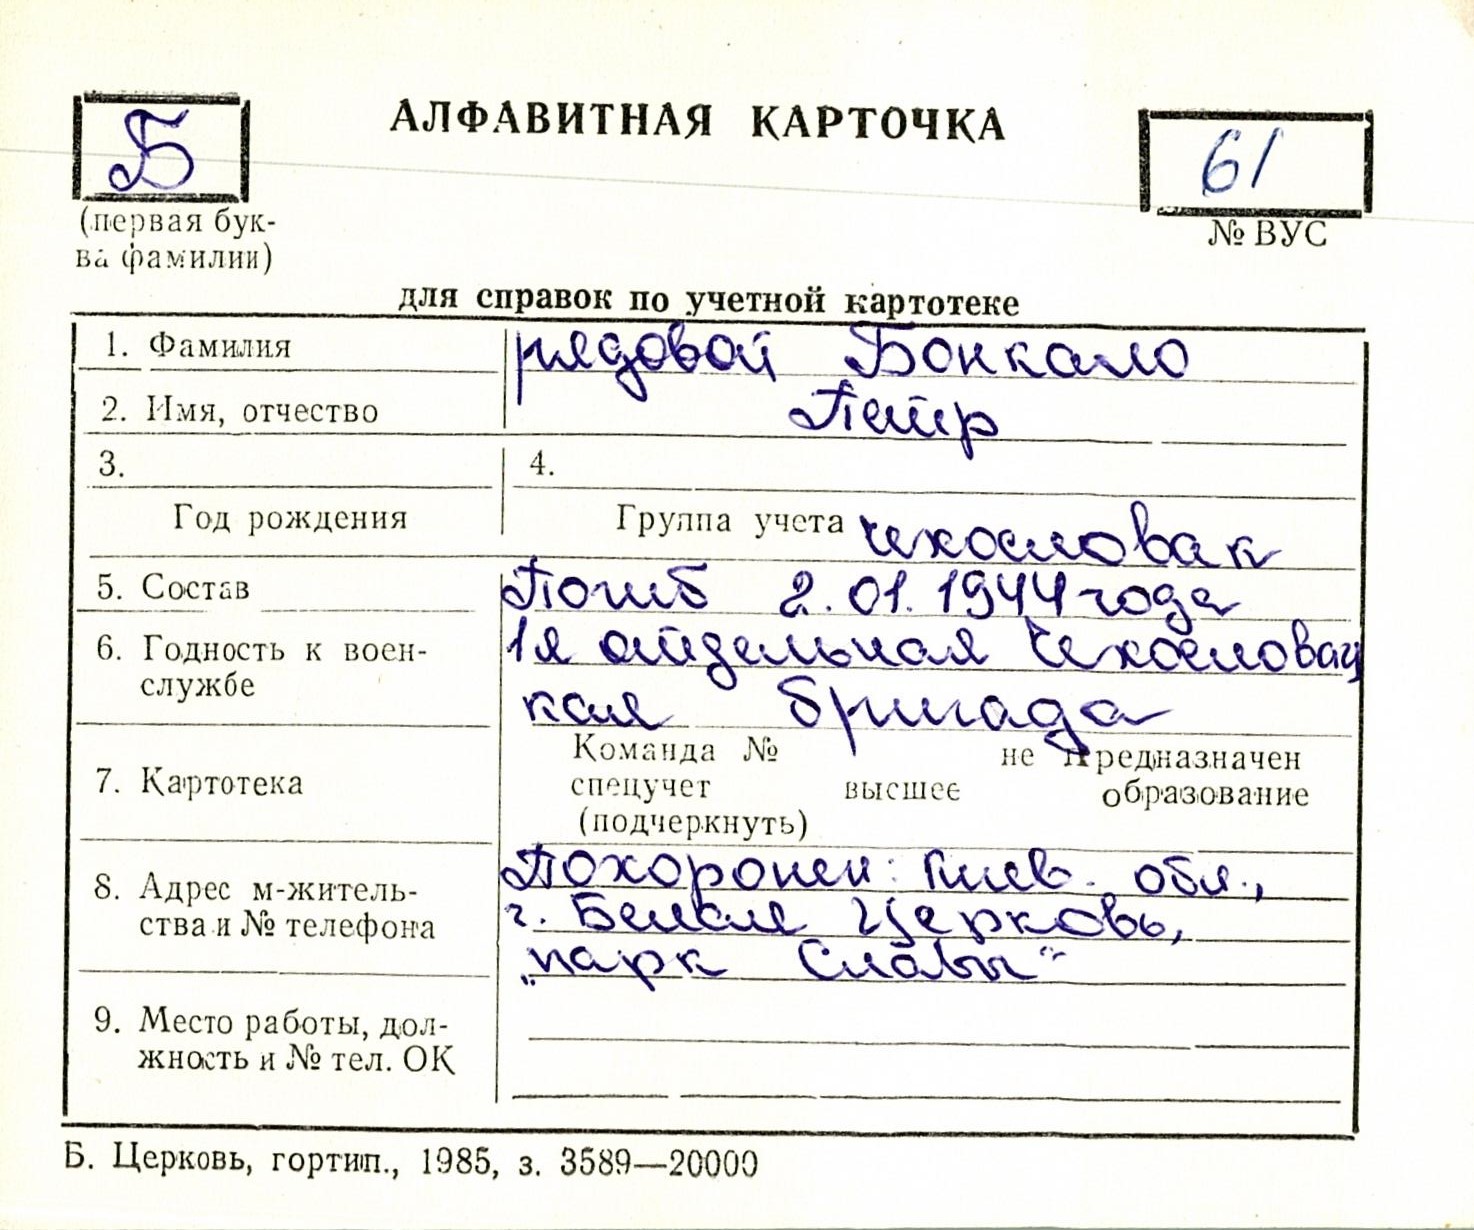 Б
АЛФАВИТНАЯ КАРТОЧКА
61
(первая бук-
ва фамилии)
№ ВУС
для справок по учетной картотеке
1. Фамилия
рядовой Бонкало
2. Имя, отчество
Петр
3.
4.
Год рождения
Группа учета чехословак
5. Состав
Погиб 2.01.1944 года
6. Годность к воен-
службе
1я отдельная Чехословац
кая бригада
7. Картотека
Команда № не предназначен
спецучет высшее образование
(подчеркнуть)
8. Адрес м-житель-
ства и № телефона
Похоронен: Киев. обл.,
г. Белая Церковь,
„парк Славы“
9. Место работы, дол-
жность и № тел. ОК
Б. Церковь, гортип., 1985, з. 3589—20000